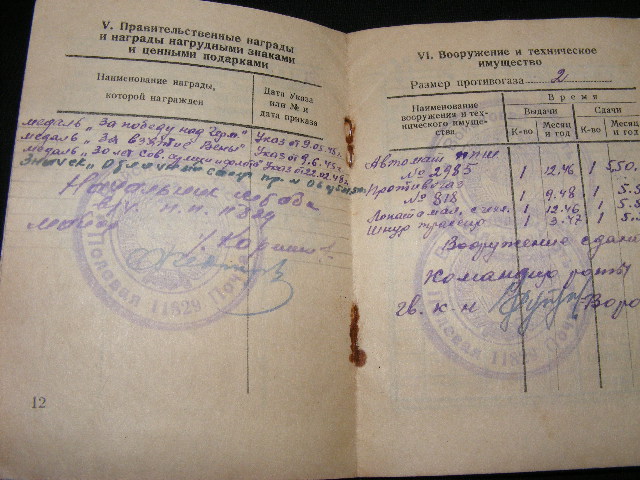 V. Правительственные награды
и награды нагрудными знаками
и ценными подарками
Наименование награды,
которой награжден
Дата Указа
или № и
дата приказа
медаль „За победу над Герм." Указ от 9.05.45 г.
медаль „За взятие Вены" Указ от 9.6.45 г.
медаль „30 лет Сов. армии и флота" Указ от 22.02.48 г.
Значок „Отличный
Начальник штаба
в/ч п.п. 11829
майор
Полевая 11829 Почта
12
VI. Вооружение и техническое
имущество
Размер противогаза 2
Наименование
вооружения и тех-
нического имуще-
ства.
Время
Выдачи
Сдачи
К-во
Месяц
и год
К-во
Месяц
и год
Автомат ППШ
№ 2985 1 12.46 1 5.50
Противогаз
№ 818 1 9.48 1
Лопата мал. с чех. 1 12.46 1
Шнур 1 3.47 1
Вооружение сдано
Командир роты
гв. к-н
Полевая 11829 Почта